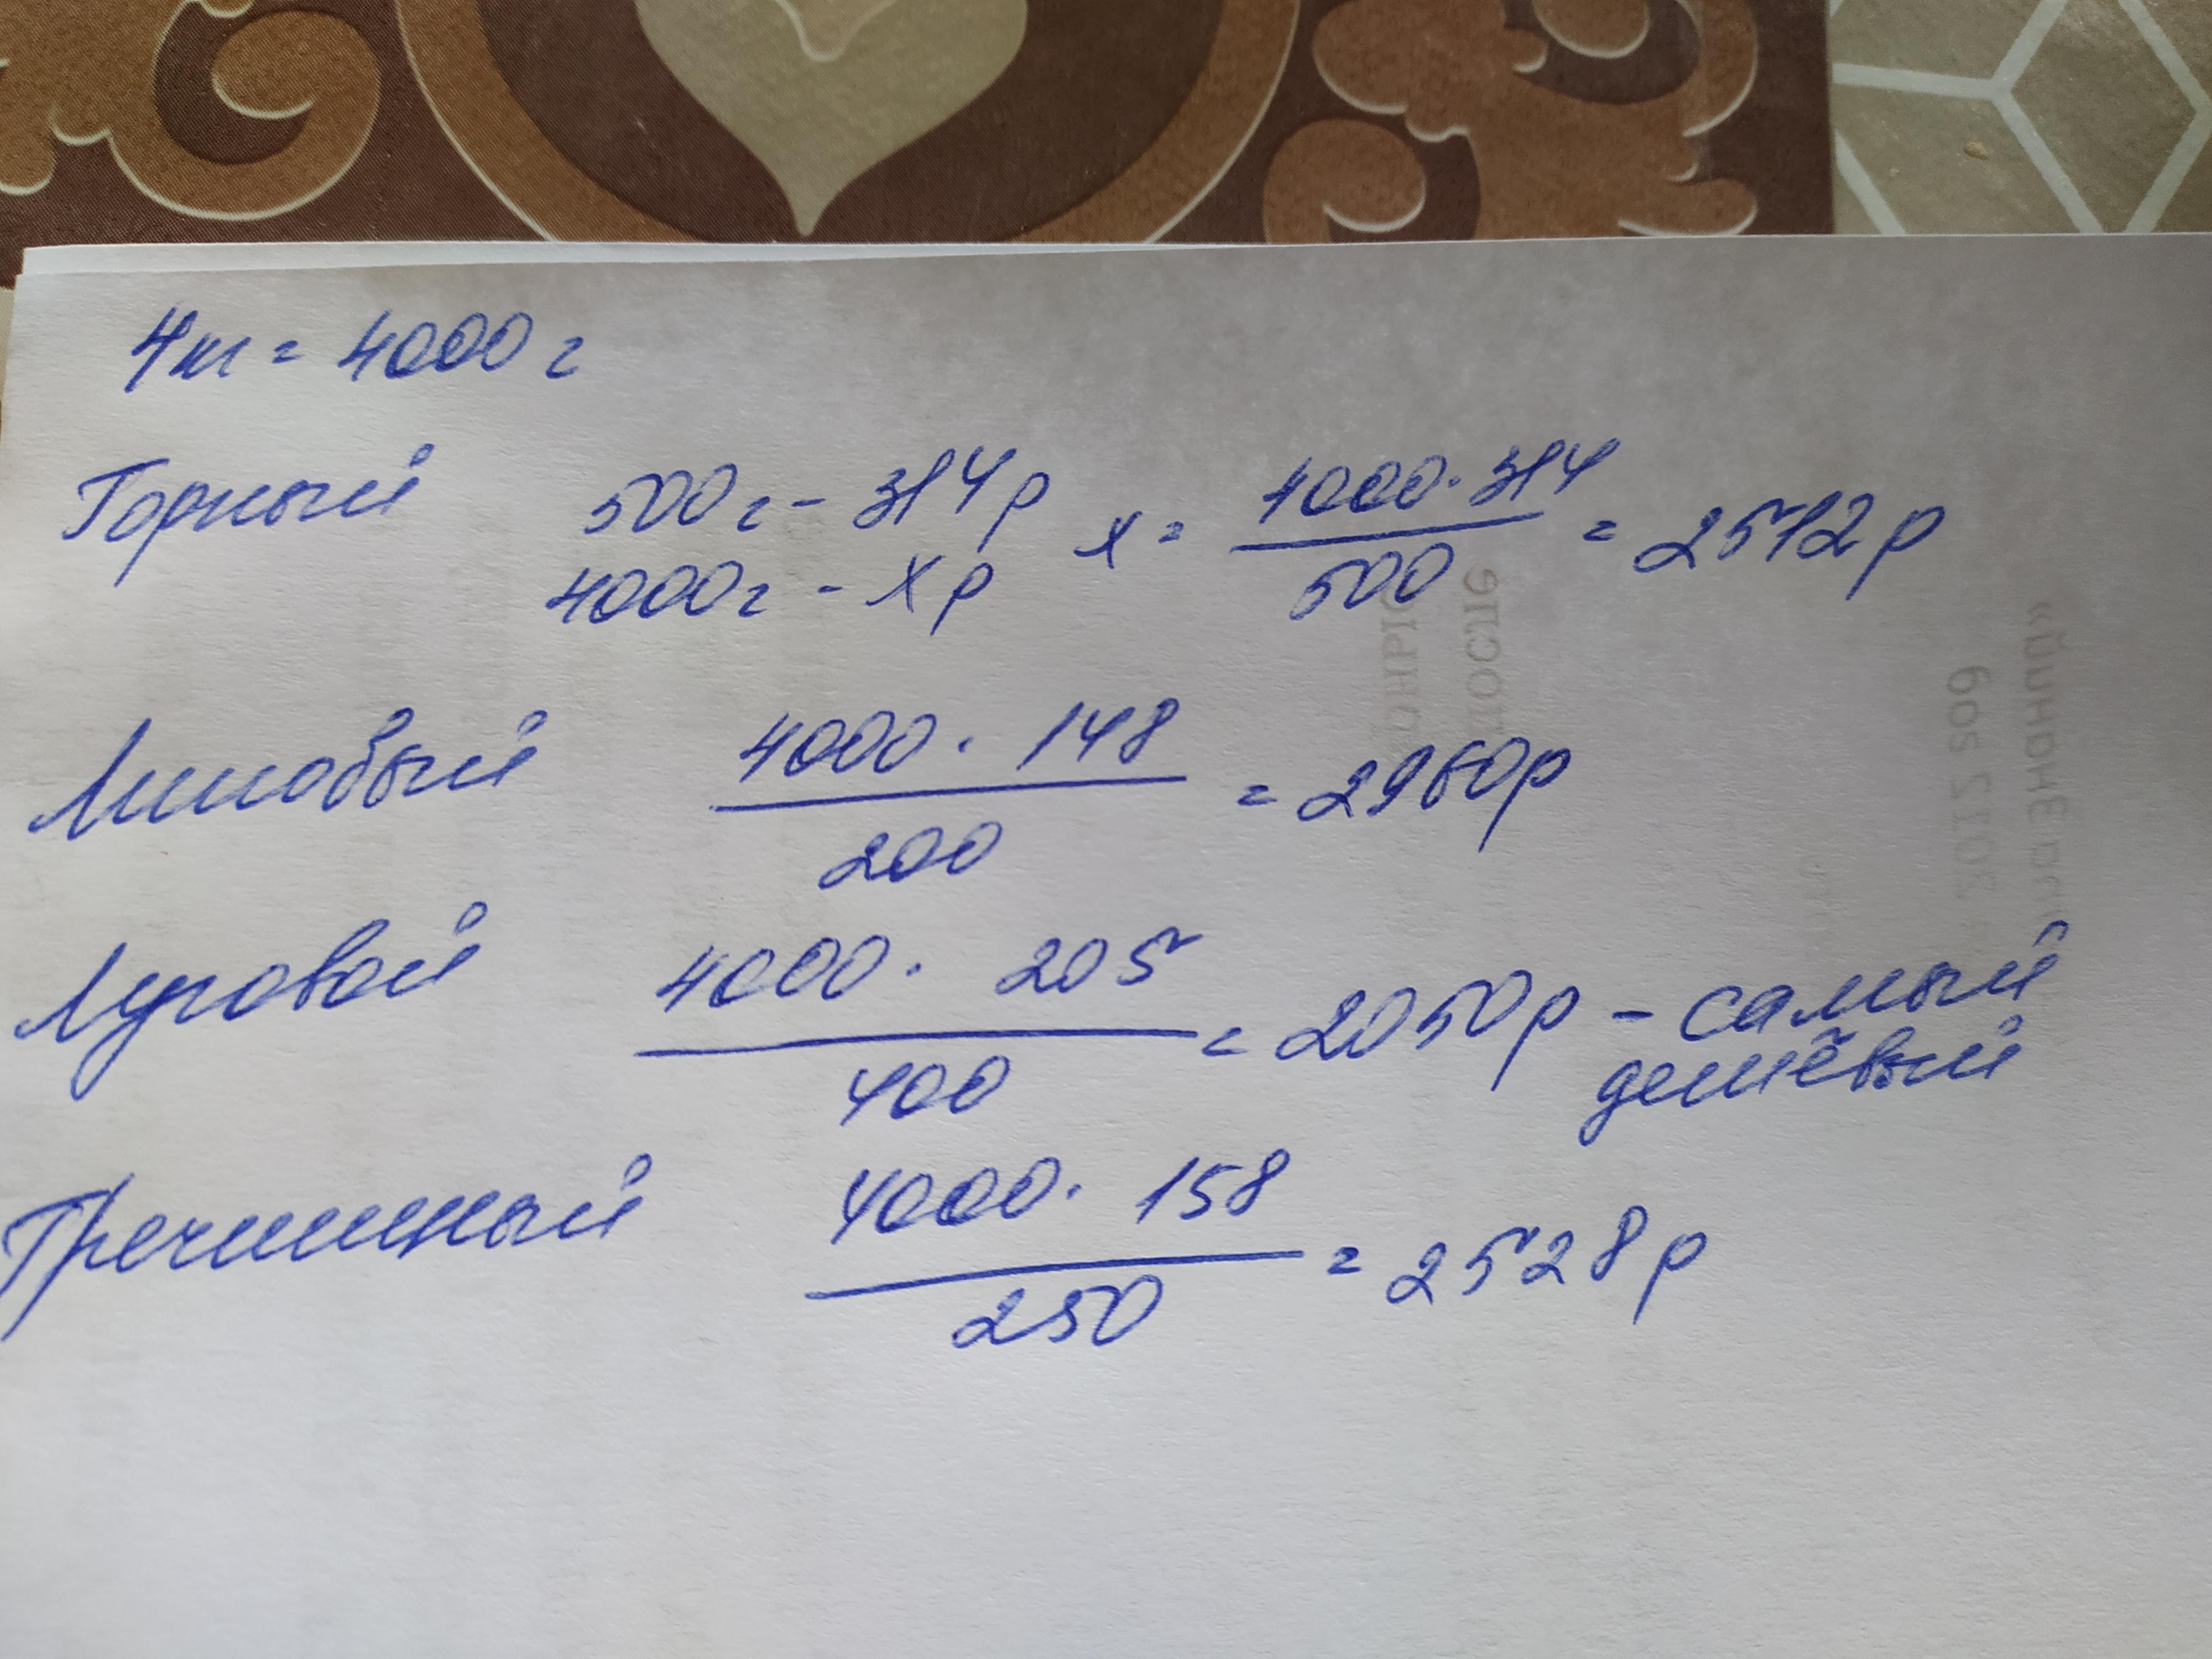 4кг = 4000 г
Горный 500 г - 314 р x = 4000 · 314 / 500 = 2512 р
4000 г - x р
Липовый 4000 · 148 / 200 = 2960 р
Луговой 4000 · 205 / 400 = 2050 р - самый
дешёвый
Гречишный 4000 · 158 / 250 = 2528 р